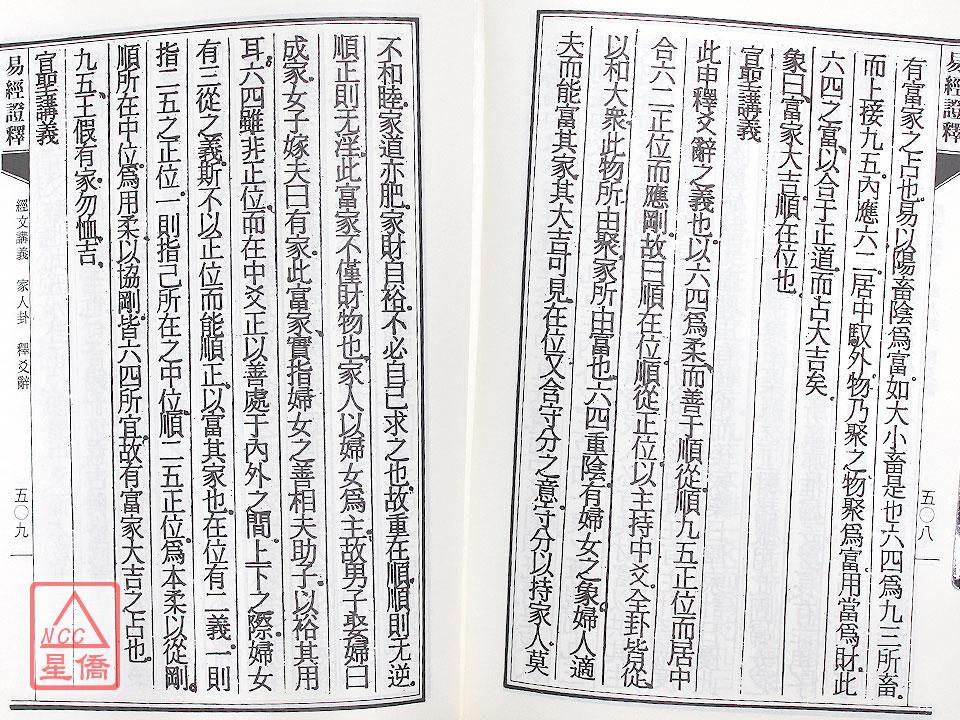 易經證釋
五〇八
有富家之占也。易以陽畜陰為富。如大小畜是也。六四為九三所畜。
而上接九五。內應六二。居中馭外。物乃聚之。物聚為富。用當為財。此
六四之富、以合于正道。而占大吉矣。
象曰、富家大吉。順在位也。
宣聖講義
此申釋爻辭之義也。以六四為柔、而善于順從。順九五正位而居中
合六二正位而應剛。故曰順在位。順從正位。以主持中爻。全卦皆從
以和大衆。此物所由聚。家所由富也。六四重陰。有婦女之象。婦人適
夫而能富其家。其大吉可見。在位又含守分之意。守分以持家。人莫
不和睦。家道亦肥。家財自裕。不必自己求之也。故重在順。順則无逆
順正則无淫。此富家不僅財物也。家人以婦女為主。故男子娶婦曰
成家。女子嫁夫曰有家。此富家、實指婦女之善相夫助子。以裕其用
耳。六四雖非正位。而在中爻。正以善處于內外之間。上下之際。婦女
有三從之義。斯不以正位而能順正。以富其家也。在位有二義。一則
指二五之正位。一則指己所在之中位。順二五正位。為本柔以從剛。
順所在中位。為用柔以協剛。皆六四所宜。故有富家大吉之占也。
九五、王假有家。勿恤。吉。
宣聖講義
易經證釋
經文講義 家人卦 釋爻辭
五〇九
NCC
星僑